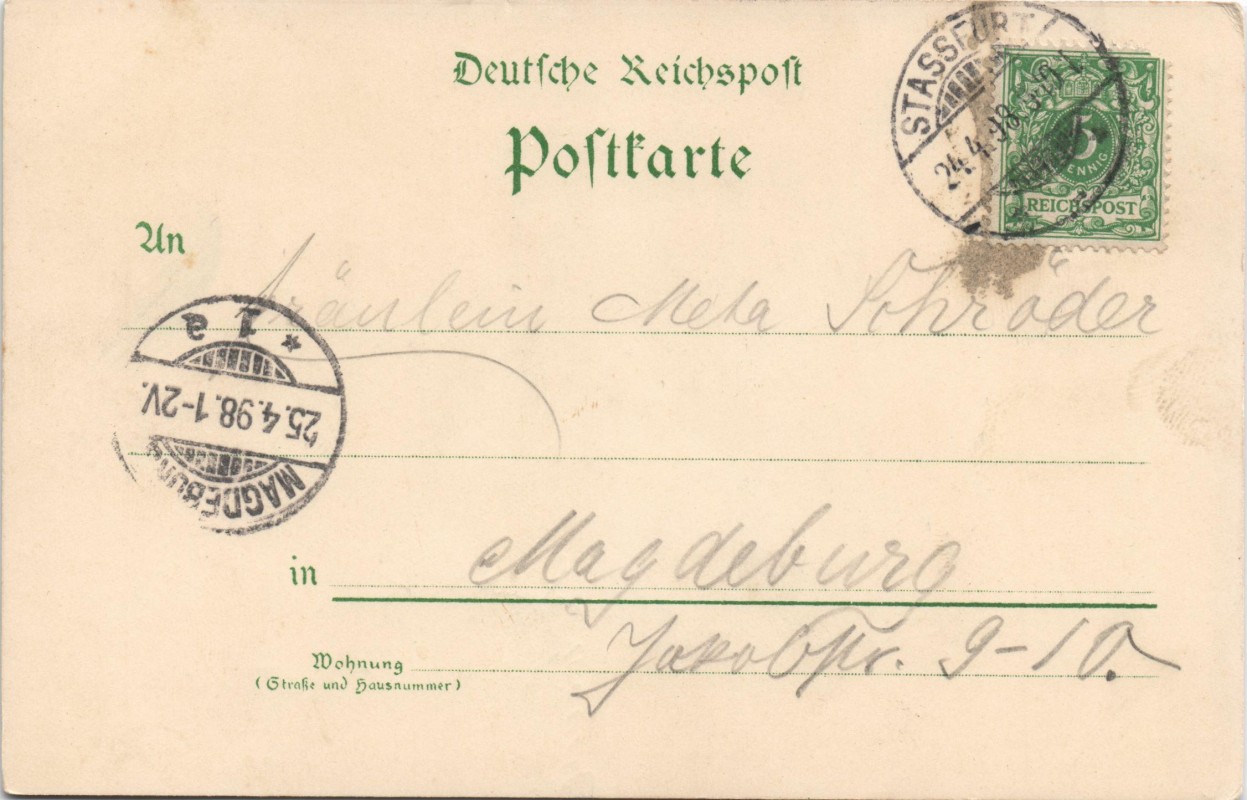 Deutsche Reichspost
Postkarte
STASSFURT
24.4.98.
5
PFENNIG
REICHSPOST
An
Fräulein Meta Schröder
* 1 a
25.4.98.1-2V.
MAGDEBURG
in Magdeburg
Wohnung Jakobstr. 9-10.
(Straße und Hausnummer)